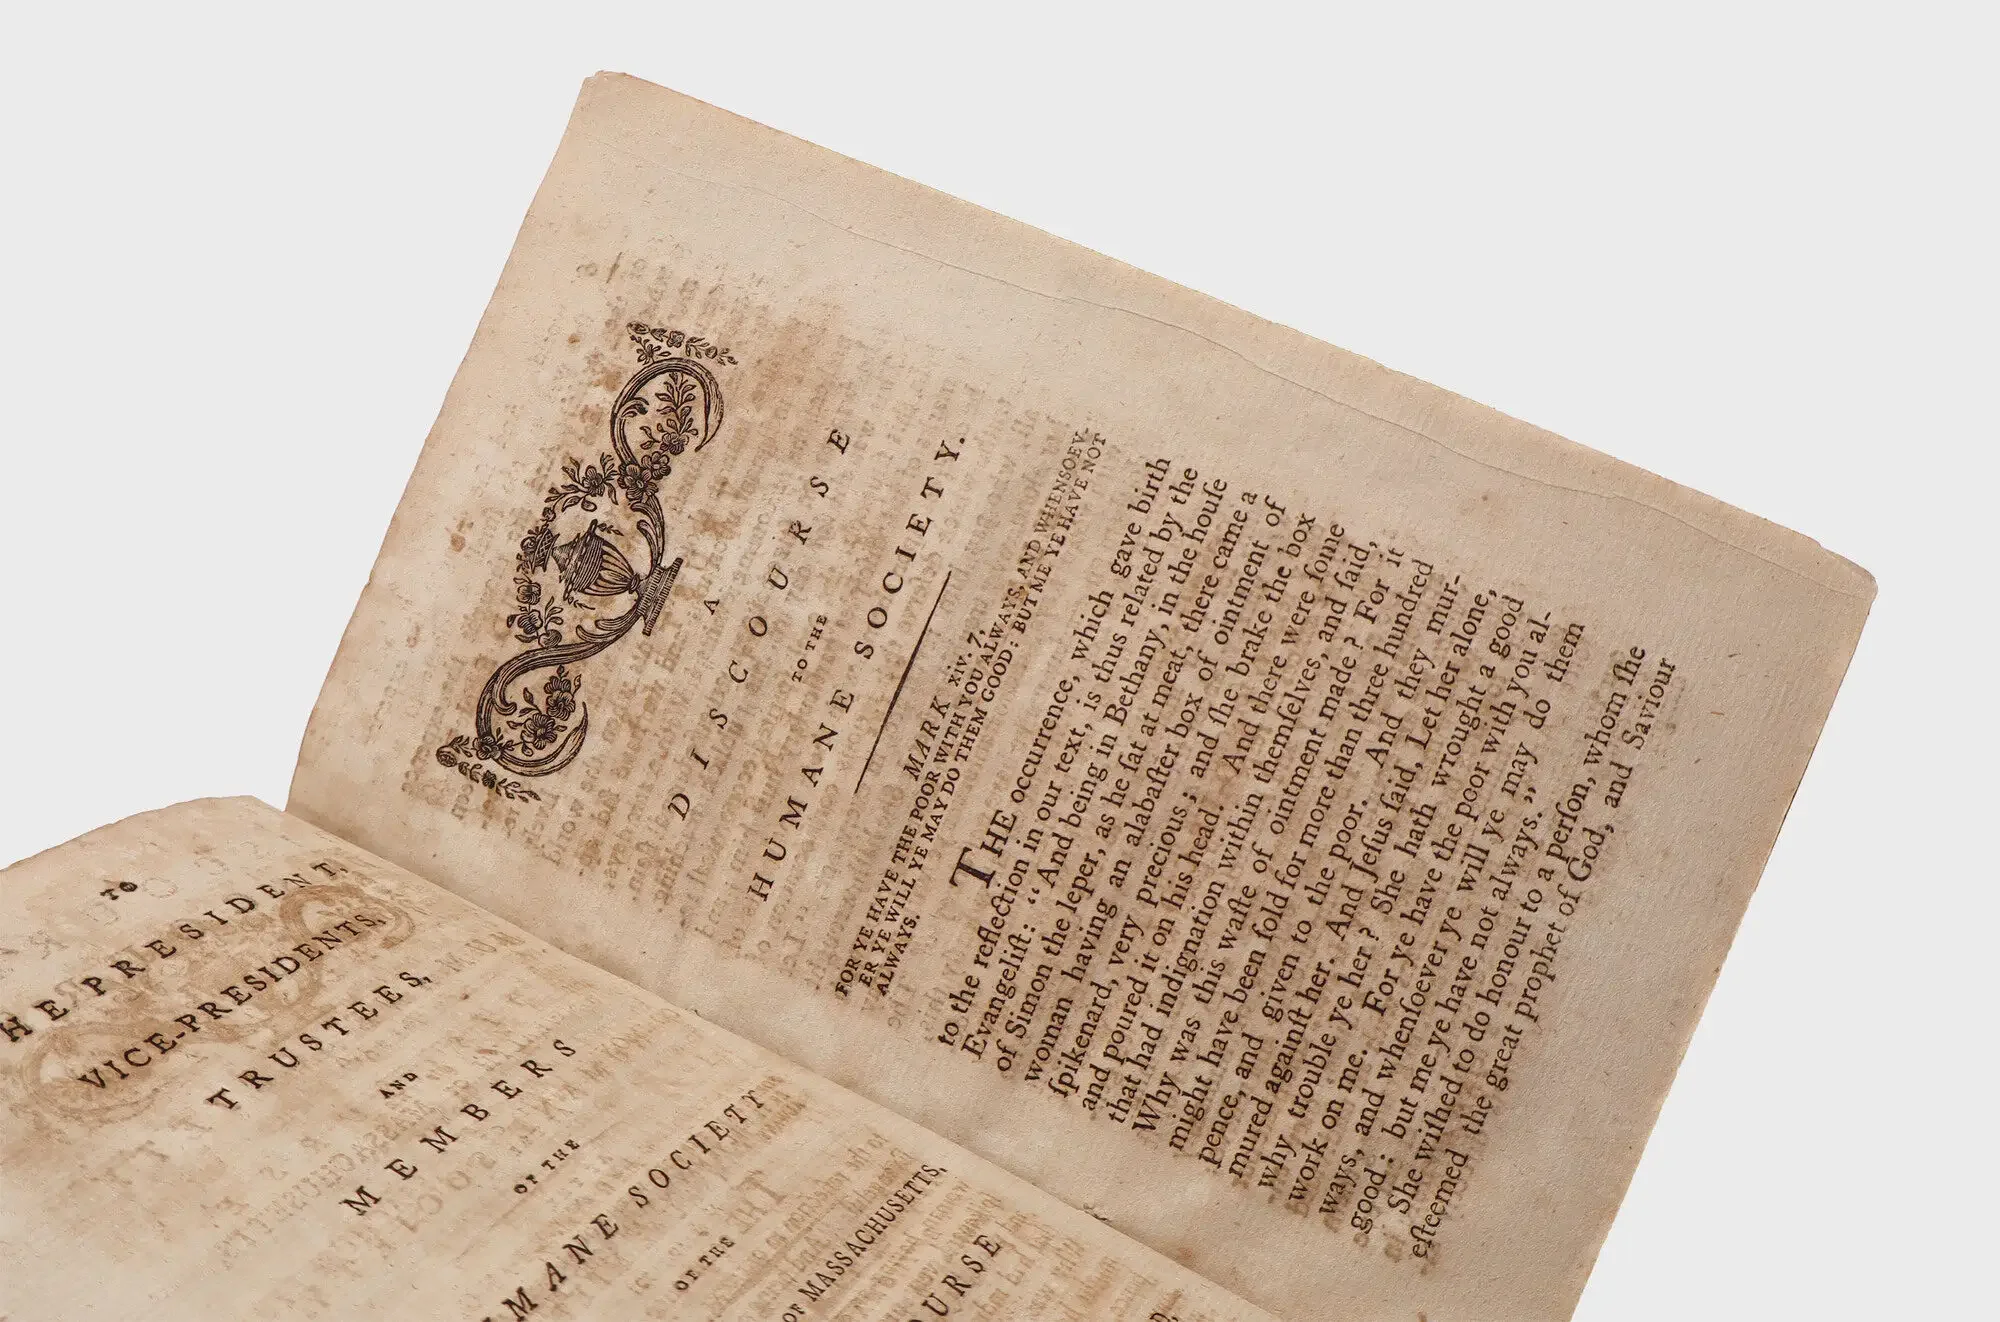 TO
HE PRESIDENT,
VICE-PRESIDENTS,
TRUSTEES,
AND
MEMBERS
OF THE
MANE SOCIETY
OF THE
OF MASSACHUSETTS,
URSE
A
DISCOURSE
TO THE
HUMANE SOCIETY.
MARK xiv. 7.
FOR YE HAVE THE POOR WITH YOU ALWAYS, AND WHENSOEV-
ER YE WILL YE MAY DO THEM GOOD: BUT ME YE HAVE NOT
ALWAYS.
THE occurrence, which gave birth
to the reflection in our text, is thus related by the
Evangeliſt: “And being in Bethany, in the houſe
of Simon the leper, as he ſat at meat, there came a
woman having an alabaſter box of ointment of
ſpikenard, very precious; and ſhe brake the box
and poured it on his head. And there were ſome
that had indignation within themſelves, and ſaid,
Why was this waſte of ointment made? For it
might have been ſold for more than three hundred
pence, and given to the poor. And they mur-
mured againſt her. And Jeſus ſaid, Let her alone,
why trouble ye her? She hath wrought a good
work on me. For ye have the poor with you al-
ways, and whenſoever ye will ye may do them
good: but me ye have not always.”
She wiſhed to do honour to a perſon, whom ſhe
eſteemed the great prophet of God, and Saviour